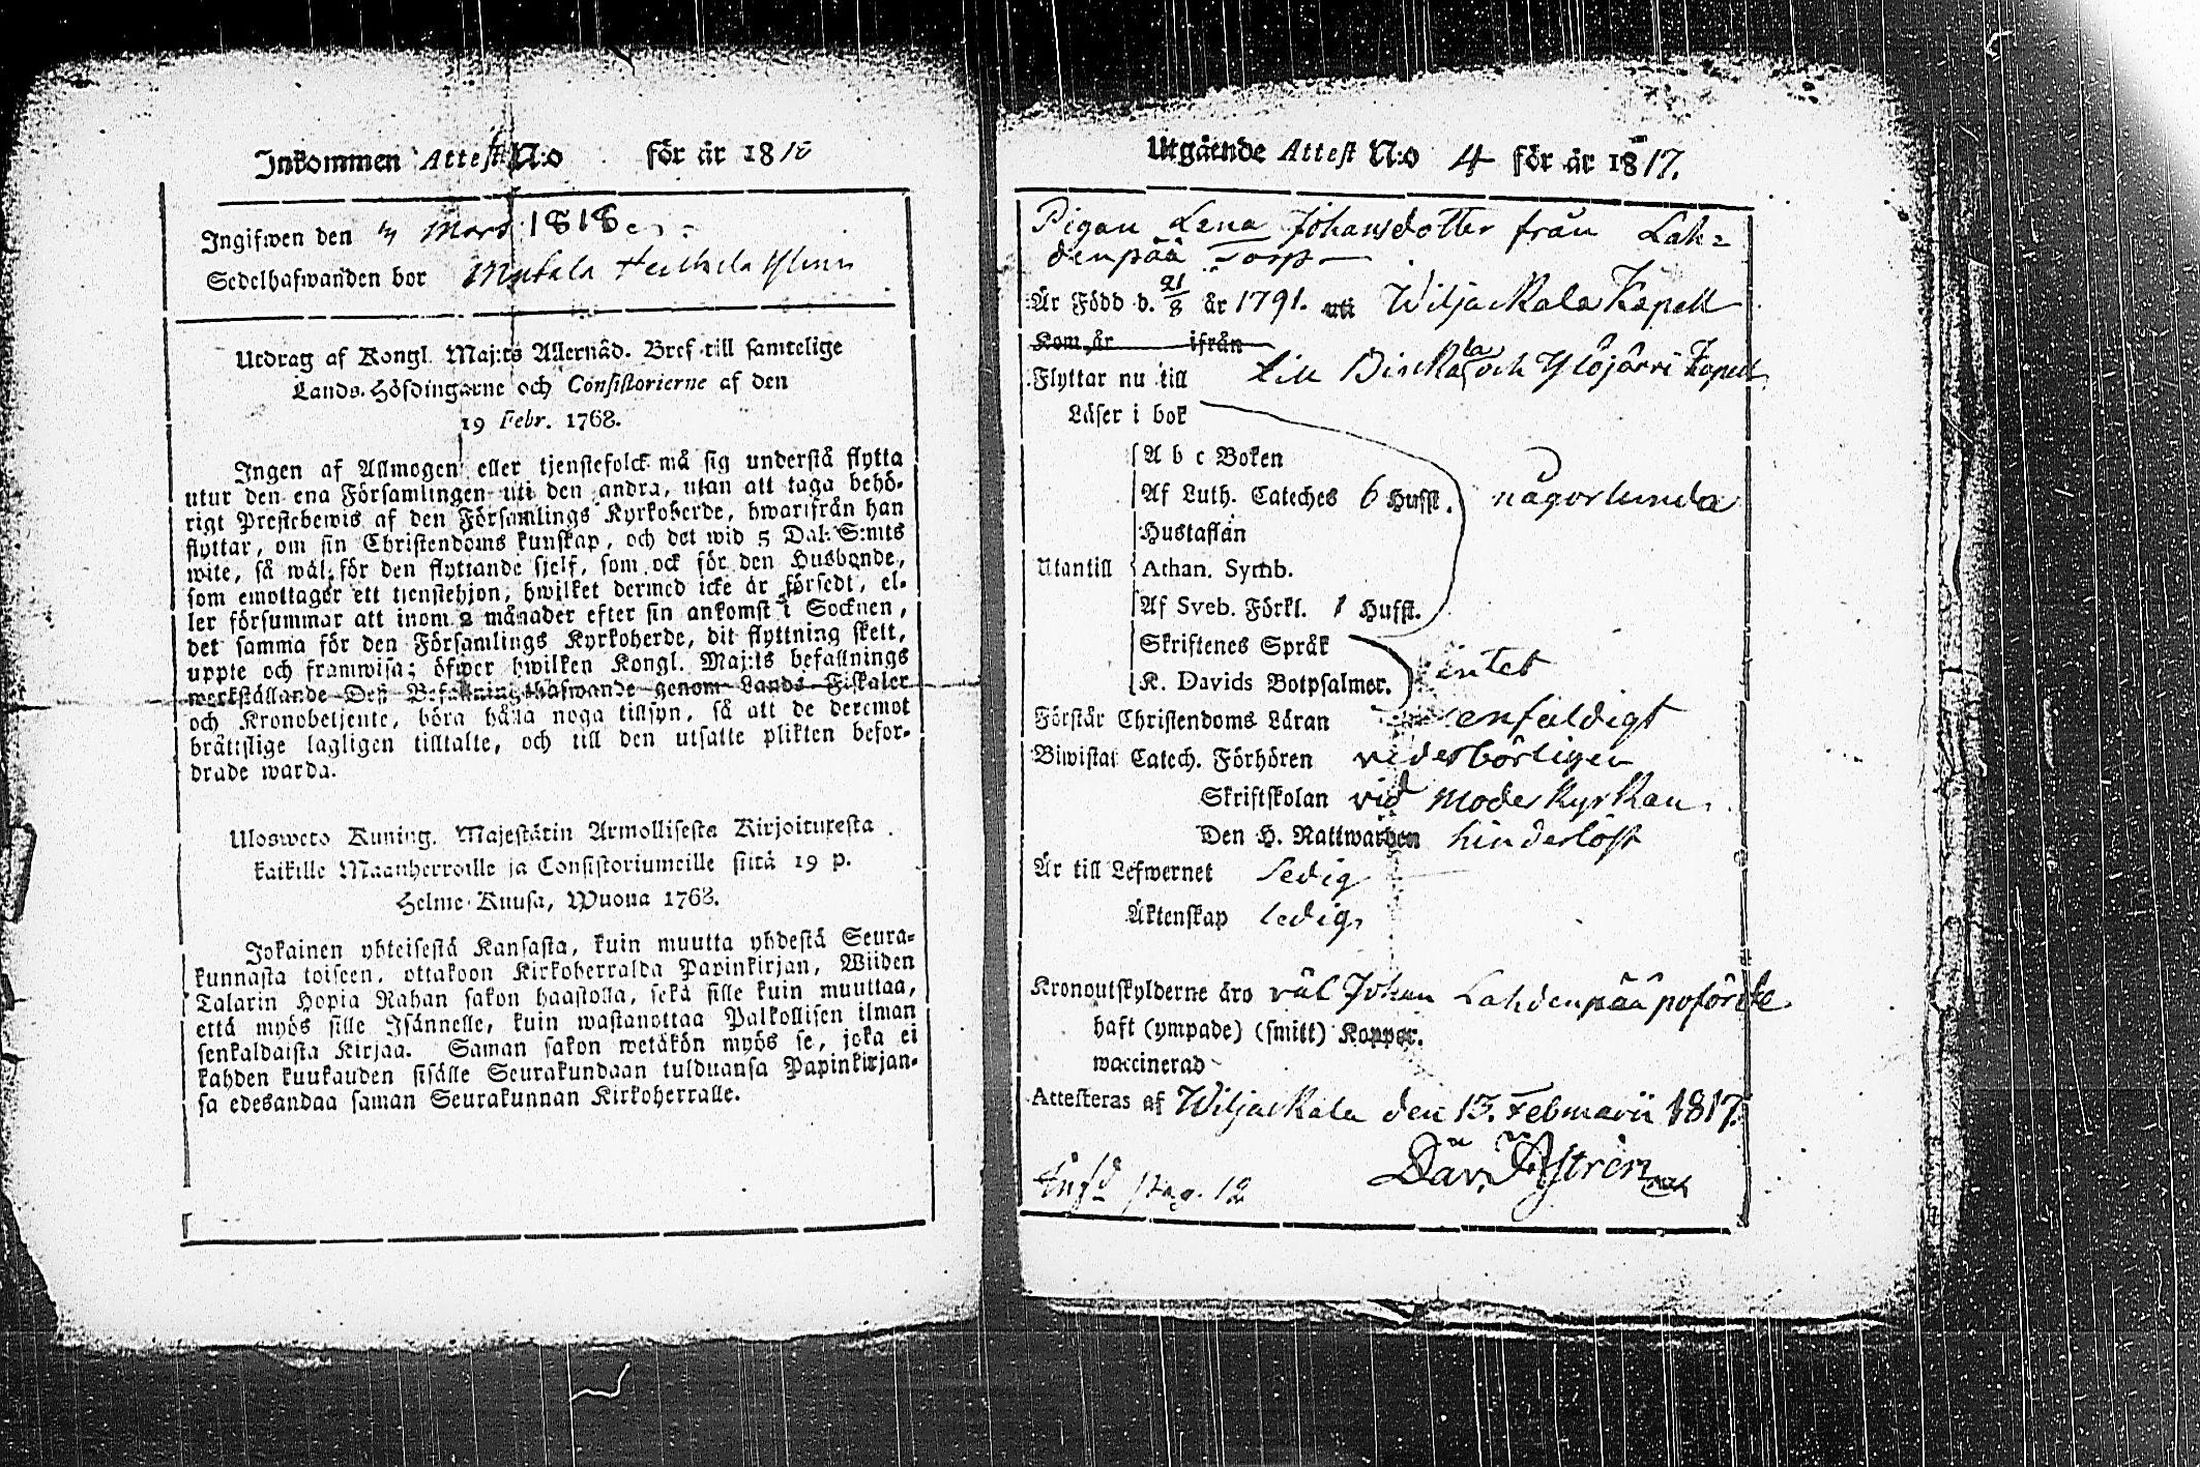 Inkommen Attest N:o för år 1818
Ingifwen den Mars 1818
Sedelhafwanden bor Mutala
Utdrag af Kongl. Maj:ts Allernåd. Bref till samtelige
Lands-Höfdingarne och Consistorierne af den
19 Febr. 1768.
Ingen af Allmogen eller tjenstefolck må sig understå flytta
utur den ena Församlingen uti den andra, utan att taga behö-
rigt Prestebewis af den Församlings Kyrkoherde, hwarifrån han
flyttar, om sin Christendoms kunskap, och det wid 5 Dal: S:mts
wite, så wäl för den flyttande sjelf, som ock för den Husbonde,
som emottager ett tienstehjon, hwilket dermed icke är försedt, el-
ler försummar att inom 2 månader efter sin ankomst i Socknen,
det samma för den Församlings Kyrkoherde, dit flyttning skett,
uppte och framwisa; öfwer hwilken Kongl. Maj:ts befallnings
werkställande Deß Befallningshafwande genom Lands-Fiskaler
och Kronobetjente, böra hålla noga tillsyn, så att de deremot
bråttslige lagligen tilltalte, och till den utsatte plikten befor-
drade warda.
Ulosweto Kuning. Majestätin Armollisesta Kirjoituxesta
kaikille Maanherroille ja Consistoriumeille siitä 19 p.
Helme-Kuusa, Wuona 1768.
Jokainen yhteisestä Kansasta, kuin muutta yhdestä Seura-
kunnasta toiseen, ottakoon Kirkoherralda Papinkirjan, Wiiden
Talarin Hopia Rahan sakon haastolla, sekä sille kuin muuttaa,
että myös sille Isännelle, kuin wastanottaa Palkollisen ilman
senkaldaista Kirjaa. Saman sakon wetäkön myös se, joka ei
kahden kuukauden sisälle Seurakundaan tulduansa Papinkirjan-
sa edesandaa saman Seurakunnan Kirkoherralle.
Utgående Attest N:o 4 för år 1817.
Pigan Lena Johansdotter från Lah=
denpää Torp
Är Född d. 21/8 år 1791. uti Wiljackala Kapell
Kom år ifrån
Flyttar nu till till Birkala och Ylöjärvi Kapell
Läser i bok
A b c Boken
Af Luth. Cateches 6 Hufst. någorlunda
Hustaflan
Utantill Athan. Symb.
Af Sveb. Förkl. 1 Hufst.
Skriftenes Språk
intet
K. Davids Botpsalmer.
Förstår Christendoms Läran enfaldigt
Biwistat Catech. Förhören vederbörligen
Skriftskolan vid Moderkyrkan
Den H. Nattwarden hinderlöst
Är till Lefwernet ledig
Äktenskap ledig
Kronoutskylderne äro väl Johan Lahdenpää påförde
haft (ympade) (smitt) Koppor.
waccinerad
Attesteras af Wiljackala den 13. Februarii 1817.
Dav. Aström
Infd pag. 12